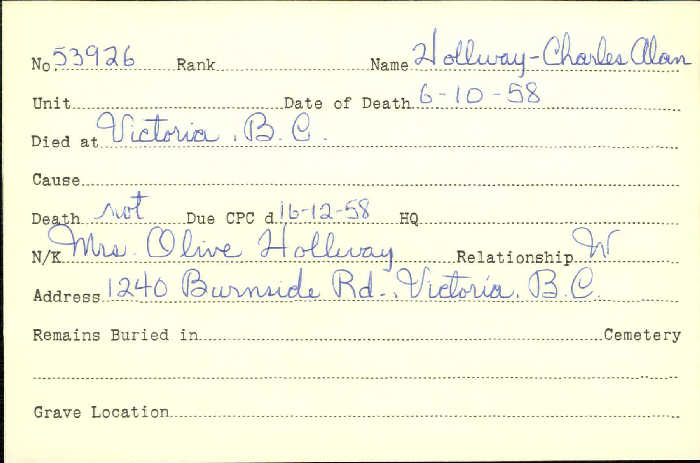 No. 53926 Rank Name Hollway-Charles Alan
Unit Date of Death 6-10-58
Died at Victoria, B.C.
Cause
Death not Due CPC d. 16-12-58 HQ
N/K Mrs. Olive Hollway Relationship W
Address 1240 Burnside Rd., Victoria, B.C.
Remains Buried in Cemetery
Grave Location